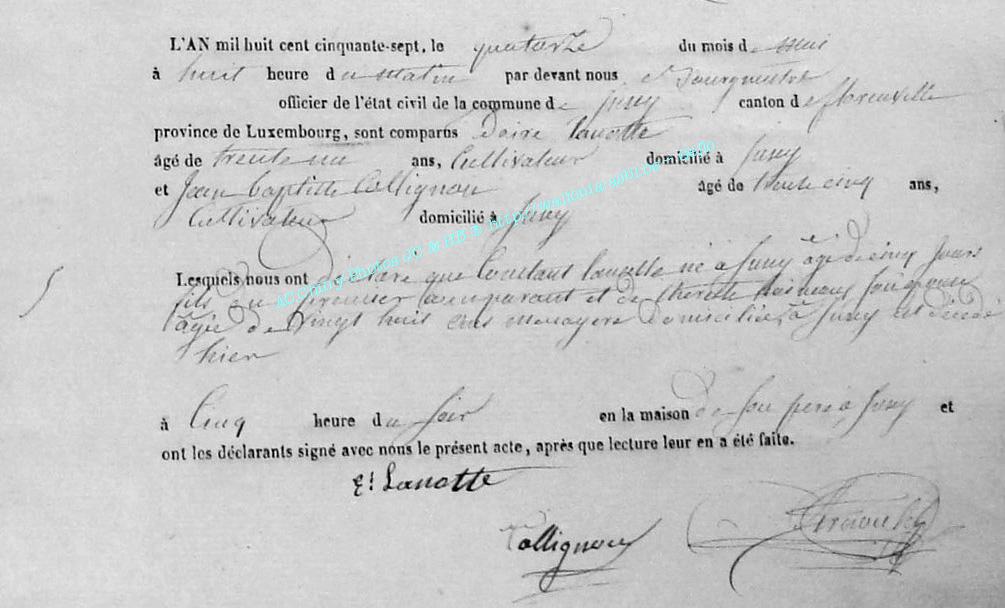 L'AN mil huit cent cinquante-sept, le quatorze du mois de mai
à huit heure du matin par devant nous
officier de l'état civil de la commune de Jusey canton de florenville
province de Luxembourg, sont comparus Lanotte
âgé de trente un ans, Cultivateur domicilié à Jusey
et Jean baptiste Collignon âgé de trente cinq ans,
Cultivateur domicilié à Jusey
Lesquels nous ont déclaré que Constant Lanotte né à Jusey âgé de cinq jours
fils du premier comparant et de therese son épouse
âgée de vingt huit ans menagere domiciliée à Jusey est décédé
hier
à Cinq heure du soir en la maison de son pere à Jusey et
ont les déclarants signé avec nous le présent acte, après que lecture leur en a été faite.
Lanotte
Collignon